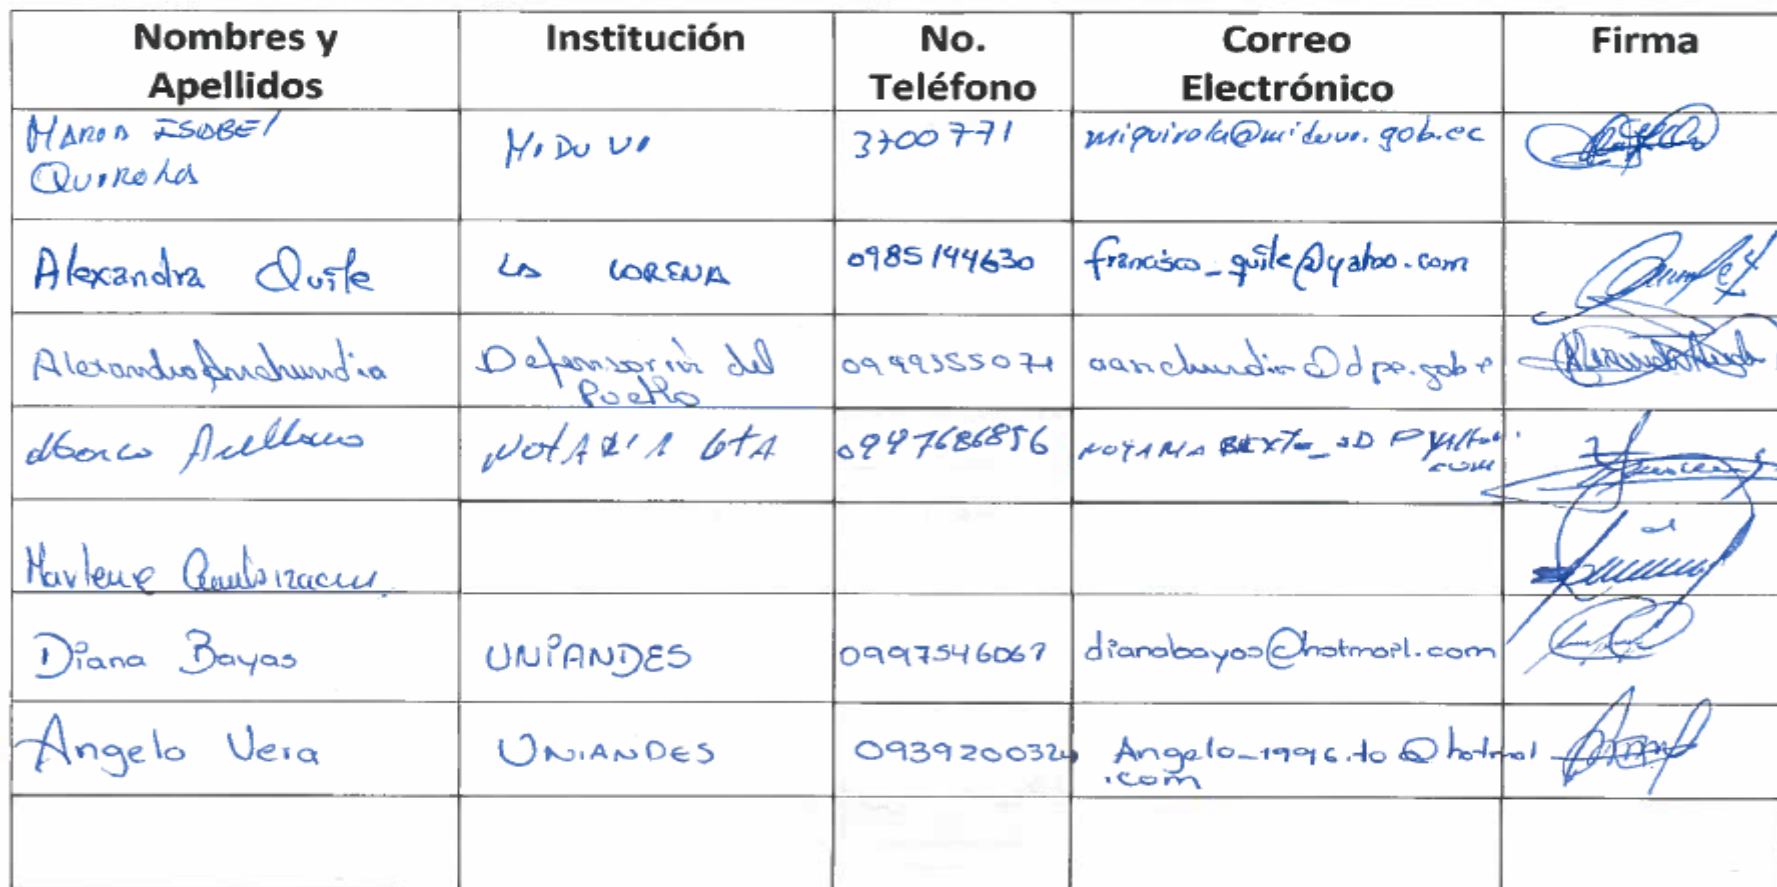 Nombres y Apellidos Institución No. Teléfono Correo Electrónico Firma
MARIA ISABEL QUIROLA MIDUVI 3700771 miquirola@miduvi.gob.ec
Alexandra Quile LA LORENA 0985144630 francisco_quile@yahoo.com
Alexandra Anchundia Defensoria del Pueblo 0999355071 aanchundia@dpe.gob.e
Marco Arellano NOTARIA 6TA 0997686856
Marlene
Diana Bayas UNIANDES 0997546067 dianabayas@hotmail.com
Angelo Vera UNIANDES 0939200324 Angelo_1996.to@hotmal.com